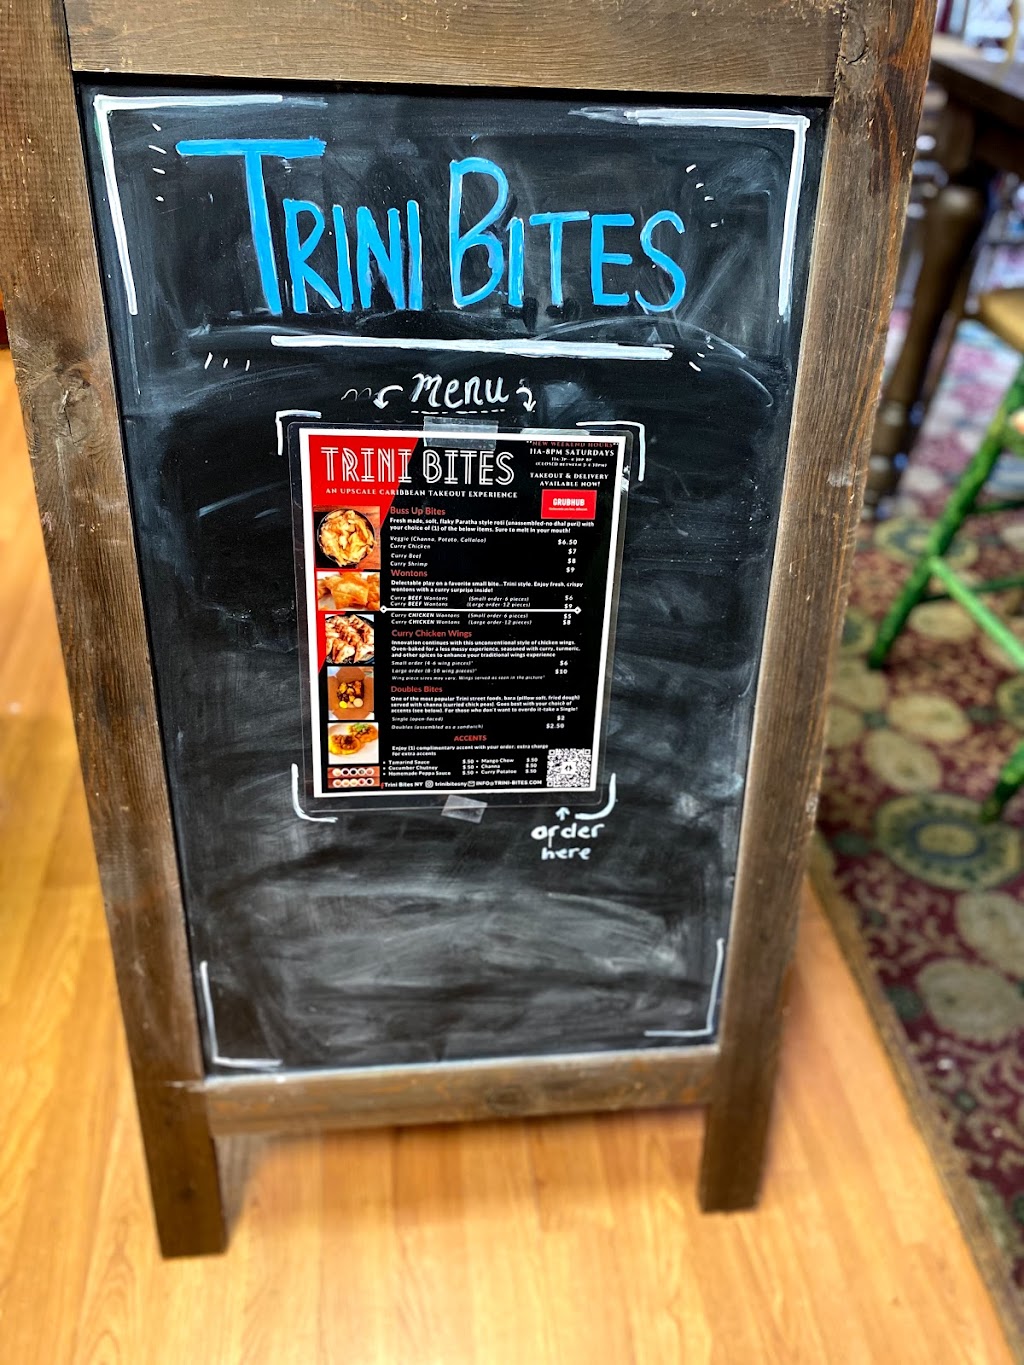 TRINI BITES
menu
TRINI BITES
AN UPSCALE CARIBBEAN TAKEOUT EXPERIENCE
"NEW WEEKEND HOURS"
11A-8PM SATURDAYS
(CLOSED BETWEEN
TAKEOUT & DELIVERY
AVAILABLE NOW!
GRUBHUB
Buss Up Bites
Fresh made, soft, flaky Paratha style roti (unassembled-no dhal puri) with
your choice of (1) of the below items. Sure to melt in your mouth!
Veggie (Channa, Potato, Callaloo) $6.50
Curry Chicken $7
Curry Beef $8
Curry Shrimp $9
Wontons
Delectable play on a favorite small bite...Trini style. Enjoy fresh, crispy
wontons with a curry surprise inside!
Curry BEEF Wontons (Small order-6 pieces) $6
Curry BEEF Wontons (Large order-12 pieces) $9
Curry CHICKEN Wontons (Small order-6 pieces) $5
Curry CHICKEN Wontons (Large order-12 pieces) $8
Curry Chicken Wings
Innovation continues with this unconventional style of chicken wings.
Oven-baked for a less messy experience, seasoned with curry, turmeric,
and other spices to enhance your traditional wings experience
Small order (4-6 wing pieces)* $6
Large order (8-10 wing pieces)* $10
Wing piece sizes may vary. Wings served as seen in the picture*
Doubles Bites
One of the most popular Trini street foods, bara (pillow soft, fried dough)
served with channa (curried chick peas). Goes best with your choice of
accents (see below). For those who don't want to overdo it-take a Single!
Single (open-faced) $2
Doubles (assembled as a sandwich) $2.50
ACCENTS
Enjoy (1) complimentary accent with your order, extra charge
for extra accents
• Tamarind Sauce $.50 • Mango Chow $.50
• Cucumber Chutney $.50 • Channa $.50
• Homemade Peppa Sauce $.50 • Curry Potatoe $.50
Trini Bites NY trinibitesny INFO@TRINI-BITES.COM
order
here